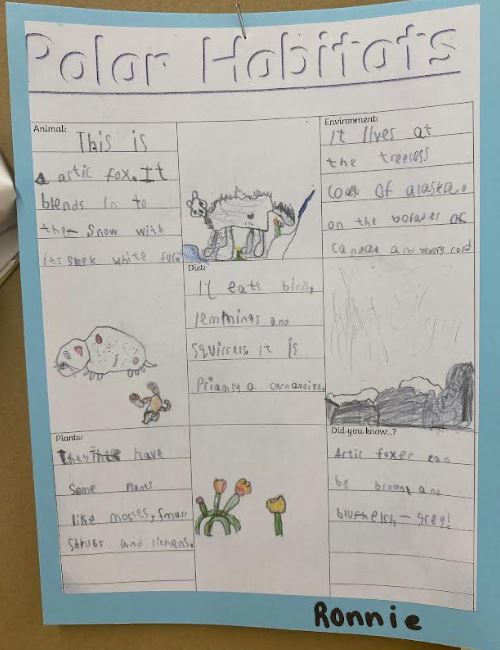 Polar Habitats
Animal:
This is
a artic fox. It
blends in to
the snow with
its sleek white fur.
Environment:
It lives at
the treeless
of alaska.
on the borders of
Canada and
Diet:
It eats birds,
lemmings and
squirrels it is
a
Plants:
They have
Some Plants
like mosses, small
shrubs and lichens.
Did you know..?
Artic foxes can
be brown and
- grey!
Ronnie